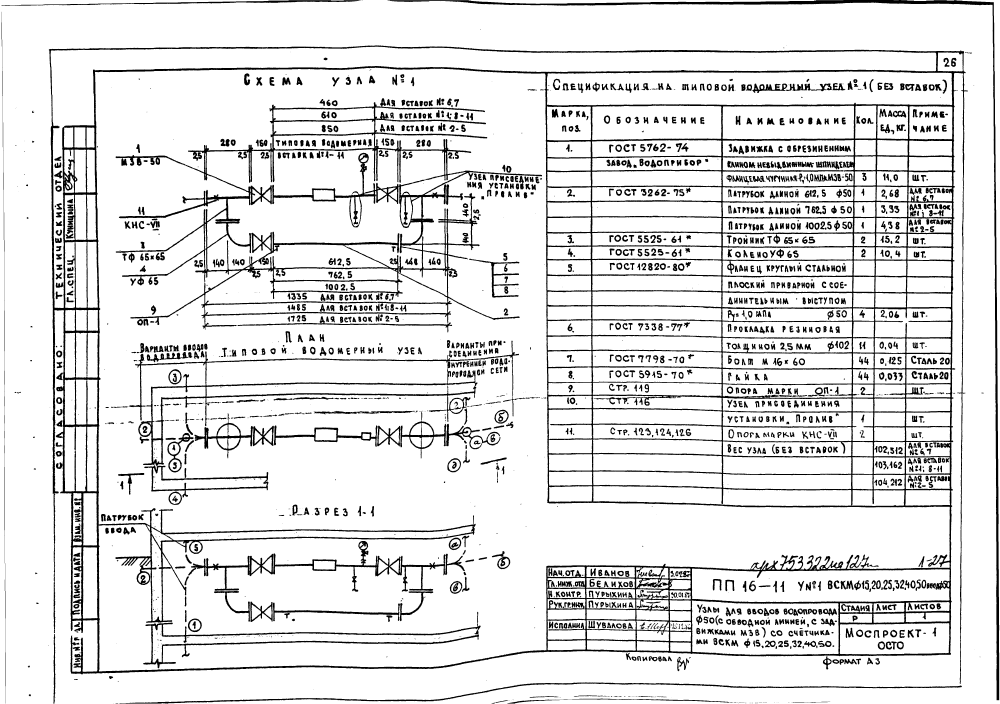 26
Схема узла №1
460 для вставок № 6,7
610 для вставок № 1; 8-11
850 для вставок № 2-5
280 150 типовая водомерная 150 280
2,5 2,5 вставка №1-11 2,5 2,5
1
МЗВ-50
10
узел присоедине-
ния установки
„Пролив"
11
КНС-VII
3
ТФ 65×65
4
УФ 65
140 2,5 140
2,5 140 140 150 2,5 612,5 2,5 140
762,5
1002,5
1335 для вставок № 6,7
1485 для вставок № 1; 8-11
1725 для вставок № 2-5
5
6
7
8
9
ОП-1
2
План
Варианты вводов
водопровода
Типовой водомерный узел
Варианты при-
соединения
внутренней водо-
проводной сети
3
2
1
4
а
б
в
1 1
Разрез 1-1
Патрубок
ввода
5
2
1
а
б
в
Спецификация на типовой водомерный узел №1 (без вставок)
Марка, поз. Обозначение Наименование Кол. Масса ед., кг. Приме-чание
1. ГОСТ 5762-74 Задвижка с обрезиненным
завод „Водоприбор" клином невыдвижным шпинделем
фланцевая чугунная Ру 1,0 МПа МЗВ-50 3 11,0 шт.
2. ГОСТ 3262-75* Патрубок длиной 612,5 ф50 1 2,68 для вставок № 6,7
Патрубок длиной 762,5 ф50 1 3,33 для вставок №1; 8-11
Патрубок длиной 1002,5 ф50 1 4,38 для вставок № 2-5
3. ГОСТ 5525-61* Тройник ТФ 65×65 2 15,2 шт.
4. ГОСТ 5525-61* Колено УФ 65 2 10,4 шт.
5. ГОСТ 12820-80* Фланец круглый стальной
плоский приварной с сое-
динительным выступом
Ру=1,0 МПа ф50 4 2,06 шт.
6. ГОСТ 7338-77* Прокладка резиновая
толщиной 2,5 мм ф102 11 0,04 шт.
7. ГОСТ 7798-70* Болт М 16×60 44 0,125 Сталь 20
8. ГОСТ 5915-70* Гайка 44 0,033 Сталь 20
9. Стр. 119 Опора марки ОП-1 2 шт.
10. Стр. 116 Узел присоединения
установки „Пролив" 1 шт.
11. Стр. 123, 124, 126 Опора марки КНС-VII 2 шт.
Вес узла (без вставок) 102,312 для вставок № 6,7
103,162 для вставок №1; 8-11
104,212 для вставок № 2-5
арх 753322 на 127л 1-27
Нач. отд. Иванов
Гл. инж. отд. Белихов
Н. контр. Пурыхина
Рук. групп. Пурыхина
Исполнил Шувалова
ПП 16-11 У №1 ВСКМ ф15,20,25,32,40,50
Узлы для вводов водопровода
ф50 (с обводной линией, с зад-
вижками МЗВ) со счётчика-
ми ВСКМ ф 15,20,25,32,40,50.
Стадия Лист Листов
Р 1
Моспроект-1
ОСТО
Копировал
формат А3
Технический отдел
Гл. спец. Куницына
Согласовано:
Взам. инв. №
Подпись и дата
Инв. № подл.